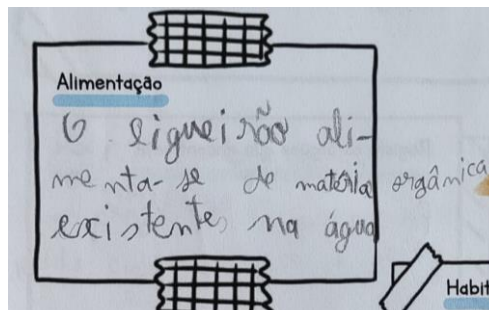 Alimentação
O ligueirão ali-
menta-se de matéria orgânica
existente, na água
Habit